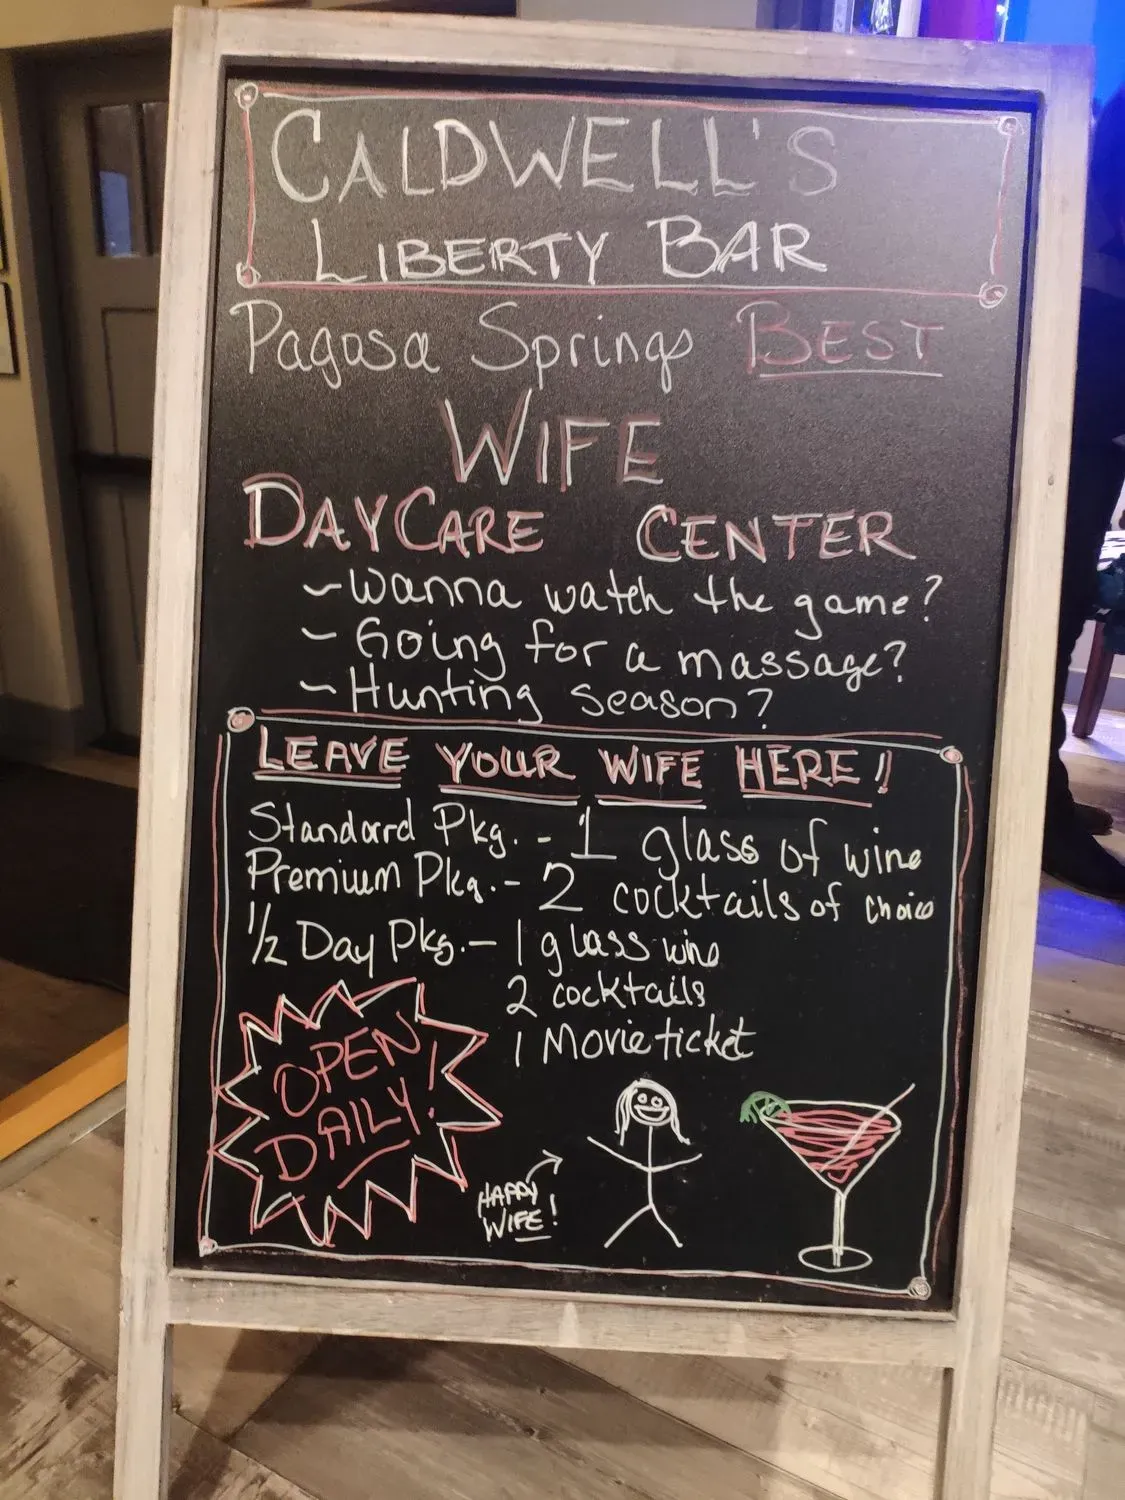 CALDWELL'S
LIBERTY BAR
Pagosa Springs BEST
WIFE
DAYCARE CENTER
~Wanna watch the game?
~ Going for a massage?
~Hunting season?
LEAVE YOUR WIFE HERE!!
Standard Pkg. - 1 glass of wine
Premium Pkg. - 2 cocktails of choice
1/2 Day Pkg. - 1 glass wine
2 cocktails
1 Movie ticket
OPEN
DAILY!
HAPPY
WIFE!